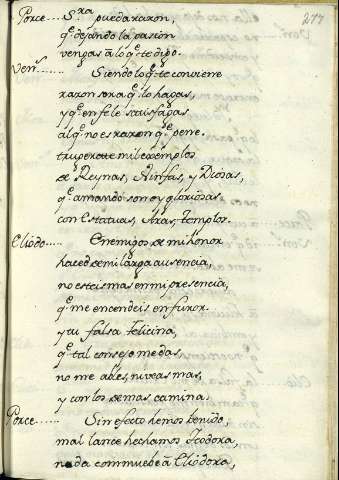 277
Porce... S.ra pueda raxon,
q.e dejando la pasion
vengas à lo q.e te digo.
Ven.s...... Siendo lo q.e te conviene
raxon sera q.e lo hagas,
y q.e en fele satisfagas
al q.e no es raxon q.e pene.
truperate mil exemplos
de Reynas, Ninfas, y Diosas,
q.e amando son oy gloriosas
con Estatuas, Aras, Templos.
Cliodo..... Enemigos de mi honor
haced de mi larga ausencia,
no esteis mas en mi presencia,
q.e me encendeis en furor.
y tu falsa felicina,
q.e tal consejo me das,
no me ables, ni veas mas,
y con los demas camina.
Porce...... Sin efecto hemos benido,
mal lance hechamos Teodora,
nada commueve à Cliodora,